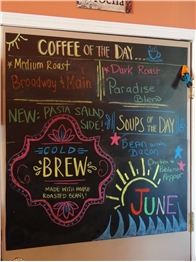 COFFEE OF THE DAY...
Medium Roast
Broadway & Main
Dark Roast
Paradise Blend
NEW: PASTA SALAD SIDE!
SOUPS OF THE DAY
Bean with Bacon
Chicken &
Pepper
COLD
BREW
MADE WITH HOUSE
ROASTED BEANS!
JUNE